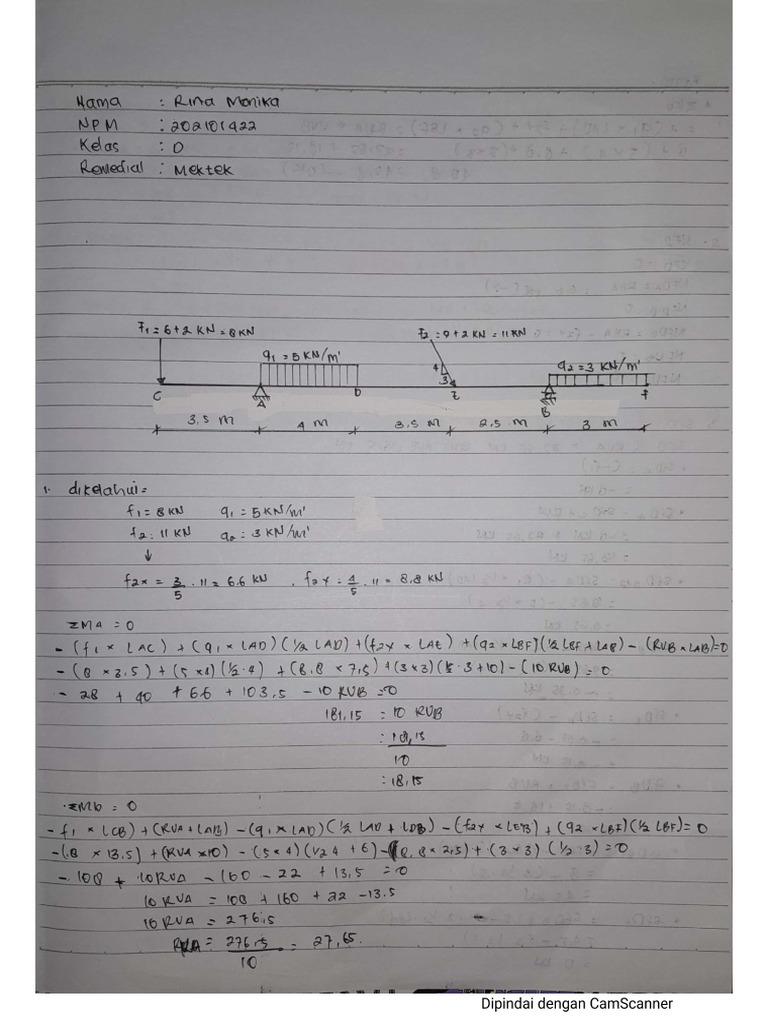 Nama : Rina Monika
NPM : 202101422
Kelas : D
Remedial : Mektek
F1 = 6+2 KN = 8 KN
F2 = 9+2 KN = 11 KN
q1 = 5 KN/m'
q2 = 3 KN/m'
4
3
C A D E B F
3,5 m 4 m 3,5 m 2,5 m 3 m
1. diketahui =
f1 = 8 KN q1 = 5 KN/m'
f2 = 11 KN q2 = 3 KN/m'
↓
f2x = 3/5 . 11 = 6.6 KN , f2y = 4/5 . 11 = 8,8 KN
ΣMA = 0
- (f1 × LAC) + (q1 × LAD) (1/2 LAD) + (f2y × LAE) + (q2 × LBF) (1/2 LBF + LAB) - (RVB × LAB) = 0
- (8 × 3.5) + (5×4) (1/2 . 4) + (8,8 × 7,5) + (3×3) (1/2 . 3 + 10) - (10 RVB) = 0
- 28 + 40 + 66 + 103,5 - 10 RVB = 0
181,15 = 10 RVB
: 181,15
10
: 18,15
ΣMb = 0
- f1 × LCB) + (RVA + LAB) - (q1 × LAD) (1/2 LAD + LDB) - (f2y × LEB) + (q2 × LBF) (1/2 LBF) = 0
- (8 × 13.5) + (RVA × 10) - (5×4) (1/2 4 + 6) - (8.8 × 2,5) + (3×3) (1/2 . 3) = 0
- 108 + 10RVA - 160 - 22 + 13,5 = 0
10 RVA = 108 + 160 + 22 - 13.5
10 RVA = 276,5
RVA = 276,5 = 27,65.
10
Dipindai dengan CamScanner